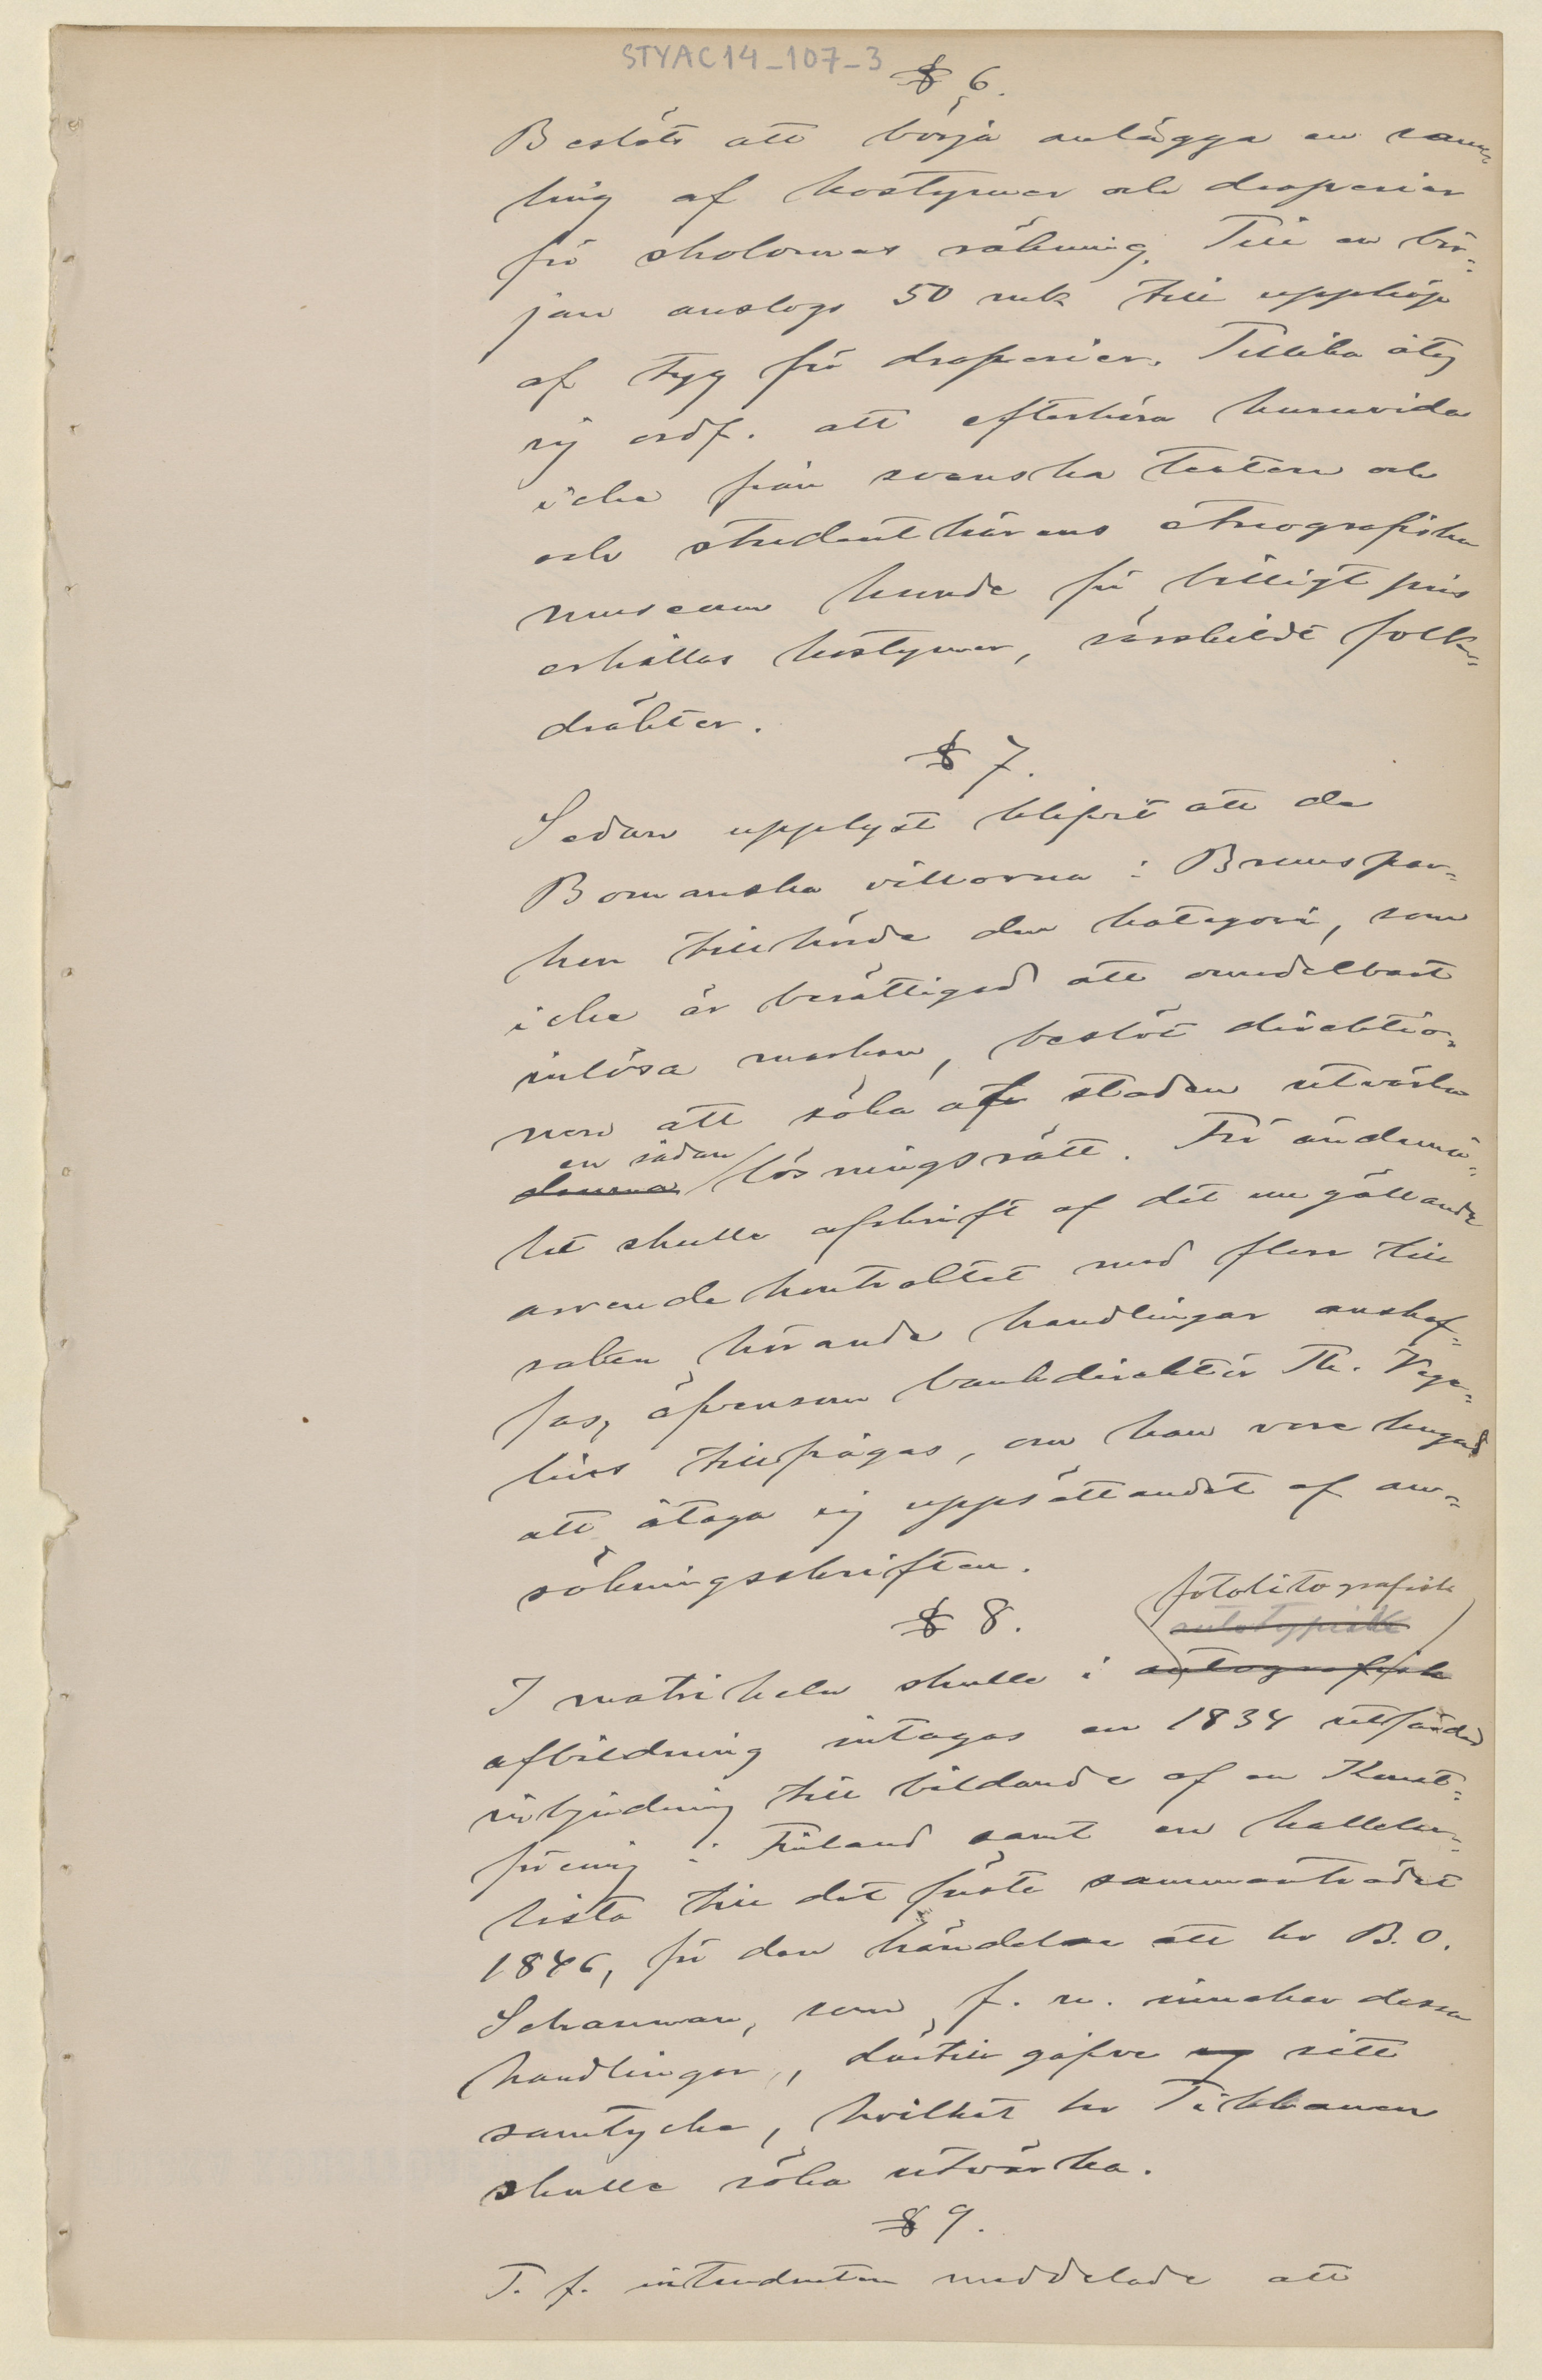 STYAC14_107_3
§ 6.
Beslöts att börja anlägga en sam-
ling af kostymer och draperier
för skolornas räkning. Till en bör-
jan anslogs 50 mk till uppköp
af tyg för draperier. Tillika åtog
sig ordf. att efterhöra huruvida
icke från svenska teatern och
och studentkårens etnografiska
museum kunde för billigt pris
erhållas kostymer, särskildt folk-
dräkter.
§ 7.
Sedan upplyst blifvit att de
Bomanska villorna i Brunspar-
ken tillhörde den kategori, som
icke är berättigad att omedelbart
inlösa marken, beslöt direktio-
nen att söka af staden utvärka
en sådan
denna lösningsrätt. För ändamå-
let skulle afskrift af det nu gällande
arrendekontraktet med flere till
saken hörande handlingar anskaf-
fas, äfvensom bankdirektör Th. Wege-
lius tillfrågas, om han vore hugad
att åtaga sig uppsättandet af an-
sökningsskriften.
§ 8.
fotolitografisk
autotypisk
I matrikeln skulle i autografisk
afbildning intagas en 1834 utfärdad
inbjudning till bildande af en Konst-
förening i Finland samt en kallelse-
lista till det första sammanträdet
1846, för den händelse att hr B. O.
Schauman, som f. n. innehar dessa
handlingar, därtill gåfve sitt
samtycke, hvilket hr Tikkanen
skulle söka utvärka.
§ 9.
T. f. intendenten meddelade att